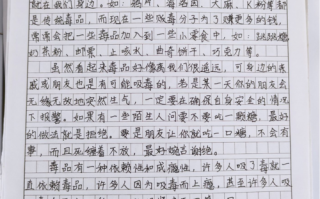 就在我们身边。如：鸦片、海洛因、大麻、K粉等都
是传统毒品，而现在一些贩毒分子为了赚更多的钱，
常常会把一些毒品加入到一些小零食中，如：跳跳糖
奶茶粉、邮票、上头水、曲奇饼干、巧克力等。
虽然看起来毒品好像离我们很遥远，可身边的亲
戚或朋友也是有可能吸毒的，若是某一天你的朋友去
无缘无故地突然生气，一定要在确保自身安全的情况
下报警。如果有一些陌生人问要不要吃一颗糖，最好
的做法就是拒绝。要是朋友让你就吃一口糖，不会有
事，而且死缠着不放，最好婉言谢绝。
毒品有一种依赖性如成瘾性，许多人吸了毒就一
直依赖毒品，许多人因为吸毒而上瘾，甚至许多人